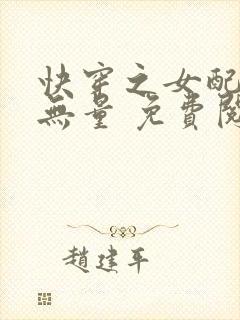 快穿之女配
無量 免費閱
趙建平